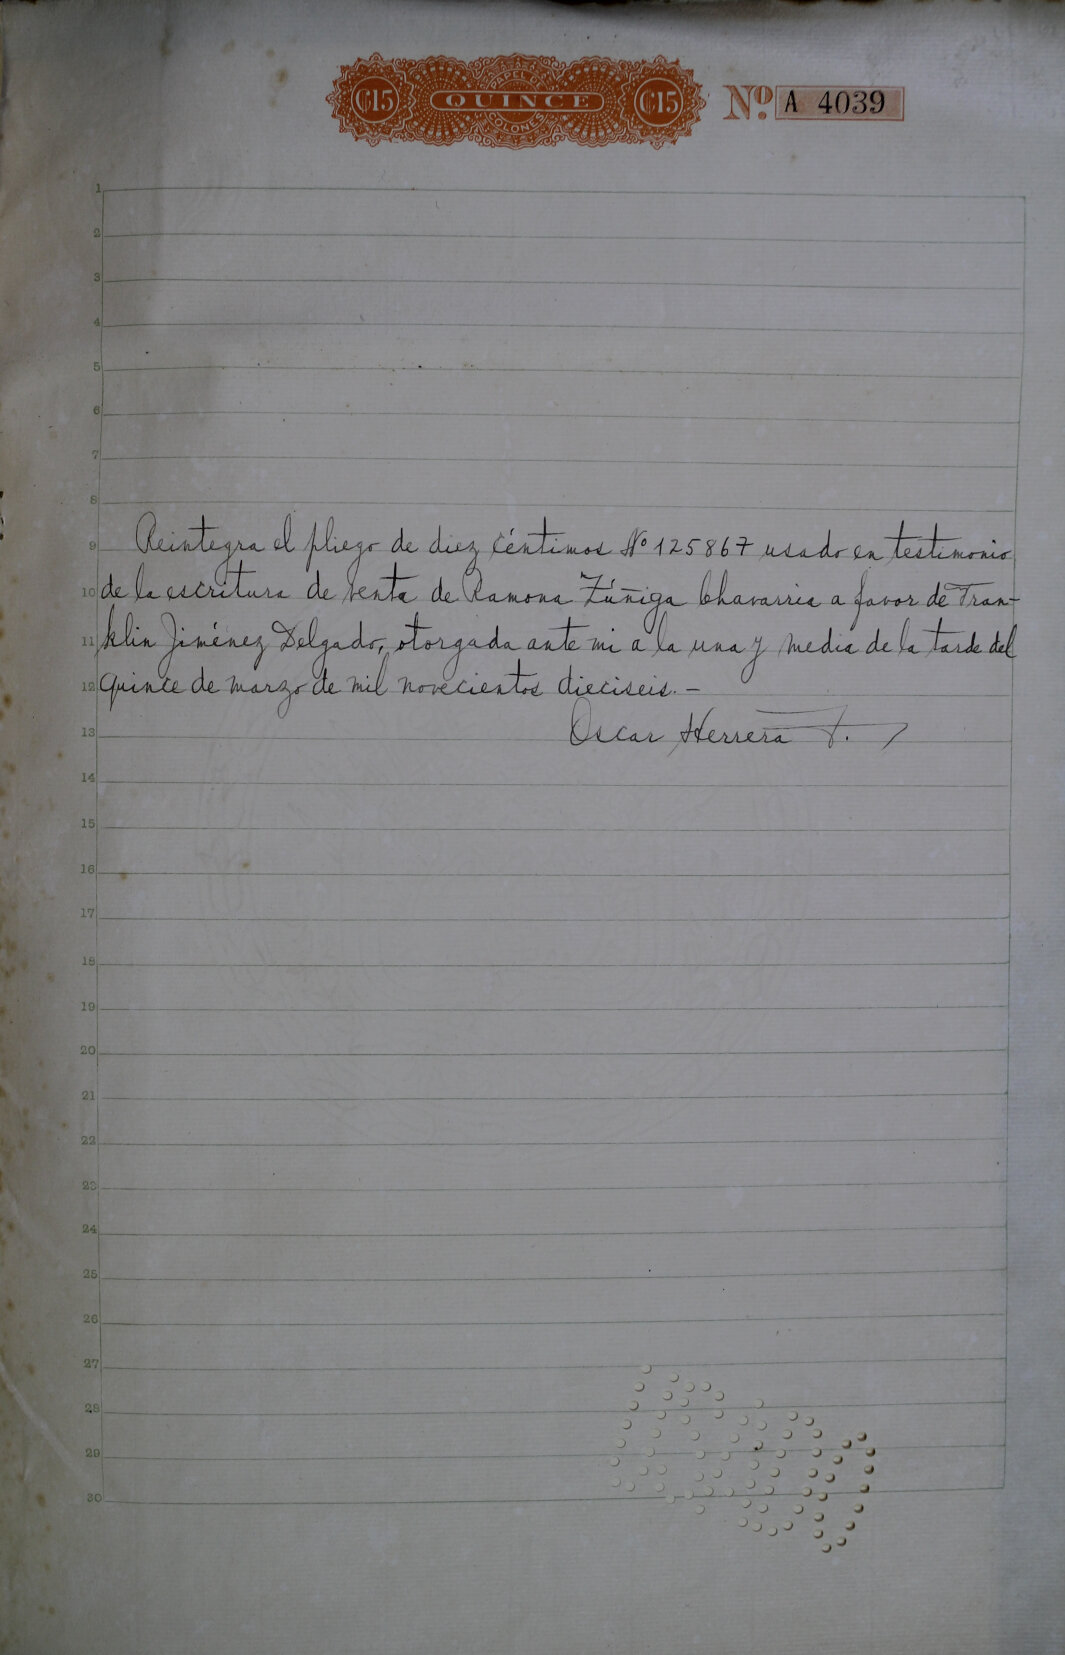 PAPEL DE
₡15 QUINCE ₡15 Nº. A 4039
COLONES
1
2
3
4
5
6
7
8
9 Reintegra el pliego de diez céntimos Nº 125867 usado en testimonio
10 de la escritura de venta de Ramona Zúñiga Chavarria a favor de Fran-
11 klin Jiménez Delgado, otorgada ante mi a la una y media de la tarde del
12 quince de marzo de mil novecientos dieciseis.-
13 Oscar Herrera J.
14
15
16
17
18
19
20
21
22
23
24
25
26
27
28
29
30